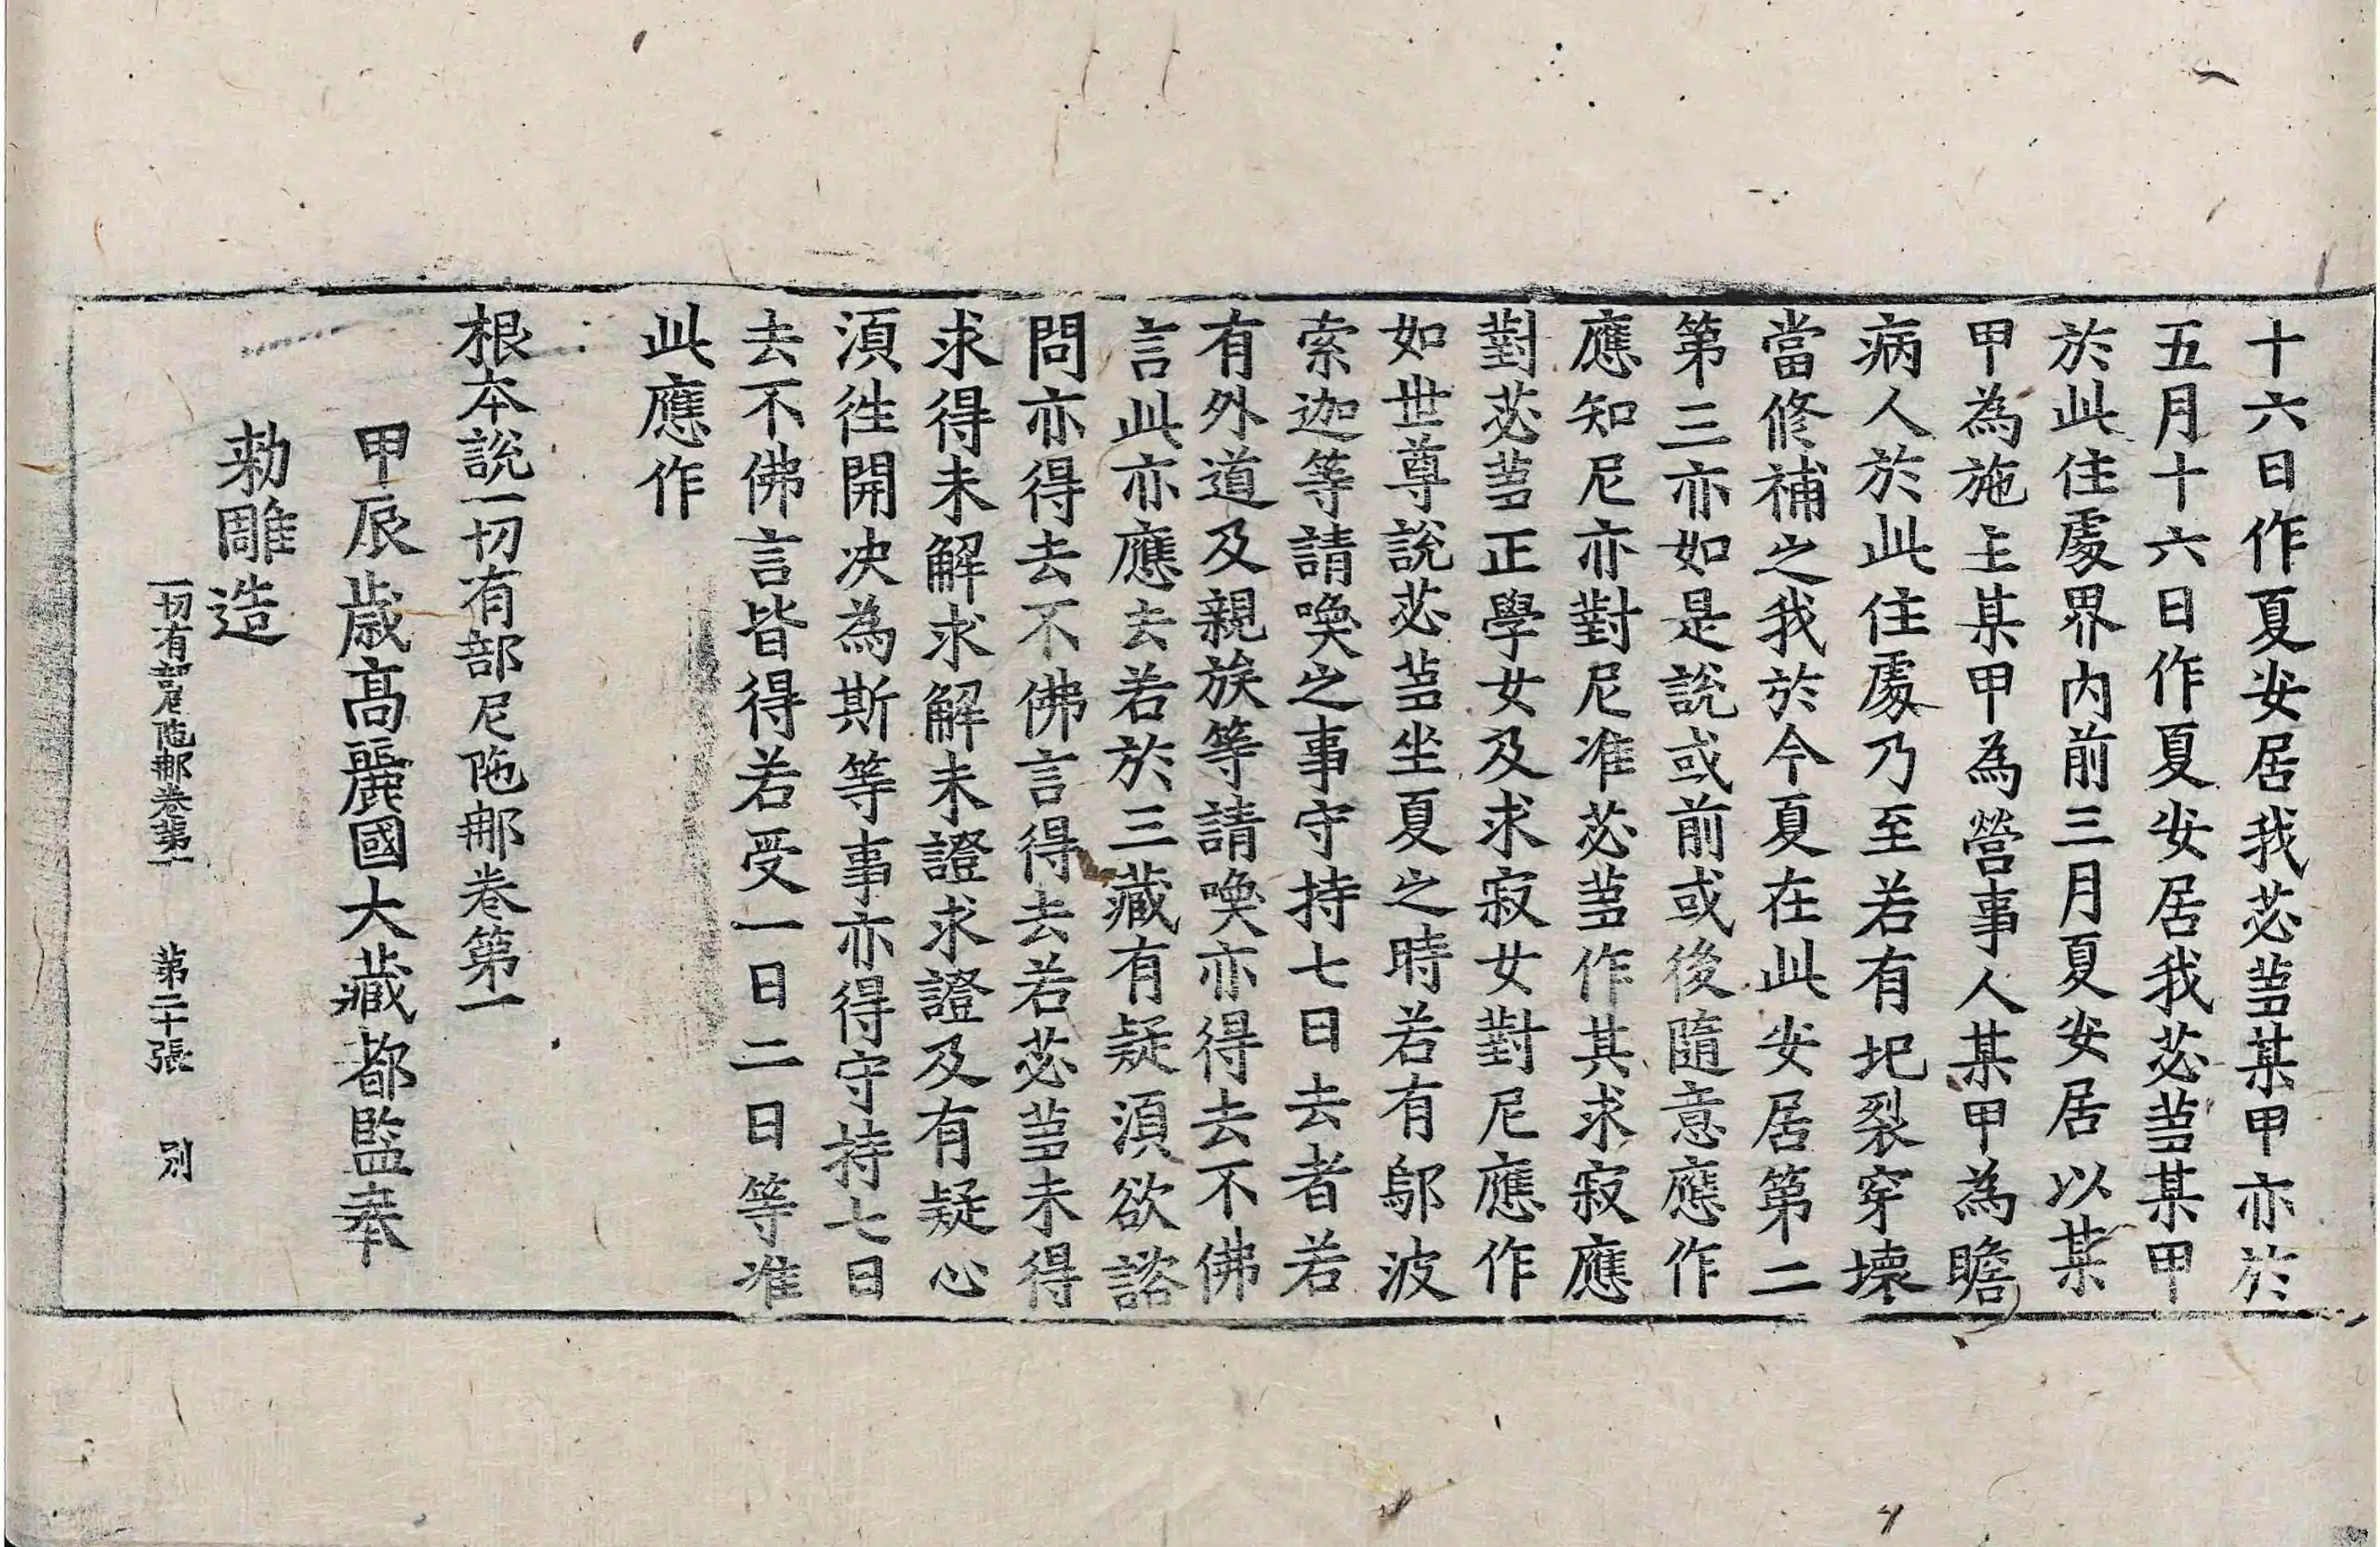 十六日作夏安居我苾蒭某甲亦於
五月十六日作夏安居我苾蒭某甲
於此住處界內前三月夏安居以某
甲為施主某甲為營事人某甲為瞻
病人於此住處乃至若有圮裂穿壞
當修補之我於今夏在此安居第二
第三亦如是說或前或後隨意應作
應知尼亦對尼准苾蒭作其求寂應
對苾蒭正學女及求寂女對尼應作
如世尊說苾蒭坐夏之時若有鄔波
索迦等請喚之事守持七日去者若
有外道及親族等請喚亦得去不佛
言此亦應去若於三藏有疑須欲諮
問亦得去不佛言得去若苾蒭未得
求得未解求解未證求證及有疑心
須往開決為斯等事亦得守持七日
去不佛言皆得若受一日二日等准
此應作
根本說一切有部尼陁那卷第一
甲辰歲高麗國大藏都監奉
勑雕造
一切有部尼陁那卷第一 第二十張 別